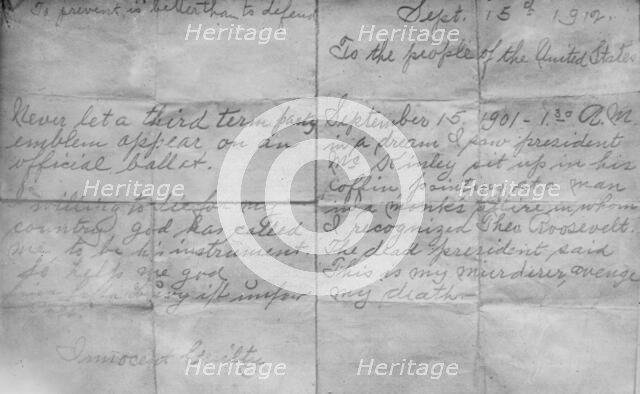 To prevent is better than to defend
Never let a third term party
emblem appear on an
official ballot.
I willing to die for my
country, god has called
me to be his instrument
So help me god
Innocent Guilty
Sept. 15th 1912.
To the people of the United States
September 15, 1901 - 1.30 A.M.
in a dream I saw president
Mc Kinley sit up in his
coffin pointing at a man
in a monks attire in whom
I recognized Theo. Roosevelt.
The dead president said
This is my murderer, avenge
my death.
heritage
Heritage
Heritage
Heritage
Heritage
Heritage
Heritage